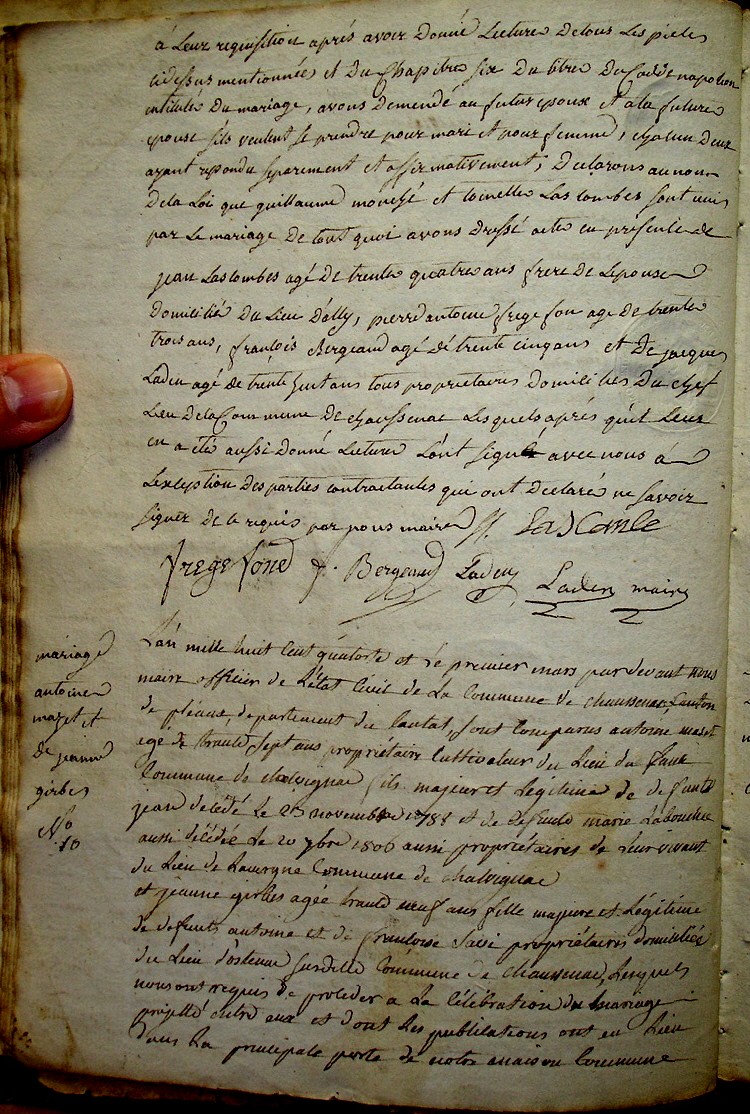 à Leur requisition aprés avoir Donné Lecture De tous Les pieces
cidessus mentionnées et Du Chapitre six Du titre Du Code napoleon
intitulé Du mariage, avons demendé au futur epoux et a la future
epouse sils veulent se prendre pour mari et pour femme, chacun Deux
ayant repondu separement et affirmativement, Declarons au nom
De la Loi que guillaume et Lascombes sont unis
par Le mariage De tout quoi avons Dressé acte en presence de
jean Lascombes agé De trente quatre ans frere De Lepouse
Domicilié Du Lieu Dally, pierre antoine frege fon age De trente
trois ans, francois Bergeaud agé De trente cinq ans et De jacques
Laden agé De trente huit ans tous proprietaires Domicilies Du chef
Lieu De la Commune De chaussenac Lesquels aprés quil Leur
en a été aussi Donné Lecture Lont signé avec nous à
Lexception Des parties contractantes qui ont Declaré ne savoir
signer De ce requis par nous maire
frege fond J. Bergeaud Laden Laden maire
mariage
antoine
mazet et
de jeanne
girbes
No
10
Lan mille huit Cent quatorse et Le premier mars par devant nous
maire officier de Létat Civil de La Commune de chaussenac, Canton
de pléaux, departement du Cantal, sont Comparus antoine maset
agé de trante sept ans propriétaire Cultivateur du Lieu du faux
Commune de chalvignac fils majeur et Légitime de defunts
jean décédé Le novembre 1788 et de defunte marie Labouche
aussi décédée Le 20 7bre 1806 aussi propriétaires de Leur vivant
du Lieu de Commune de chalvignac
et jeanne girbes agée trante neuf ans fille majeure et Légitime
de defunts antoine et de francoise propriétaires domiciliés
du Lieu dostenac susditte Commune de Chaussenac, Lesquels
nous ont requis de proceder a La Célébration du mariage
projetté entre eux et dont Les publications ont eu Lieu
dans La principale porte de notre maison Commune